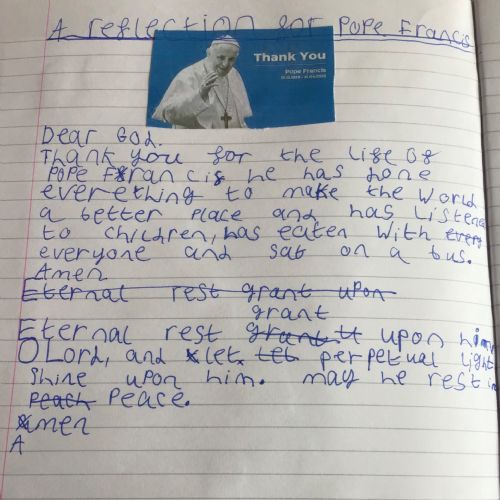 A reflection for Pope Francis
Thank You
Pope Francis
Dear God.
Thank you for the life of
Pope Francis he has done
everething to make the world
a better place and has listene
to children, has eaten with every
everyone and sat on a bus.
Amen
Eternal rest grant upon
grant
Eternal rest grant it upon him
O Lord, and let. let perpetual light
Shine upon him. may he rest in
peach Peace.
Amen
A